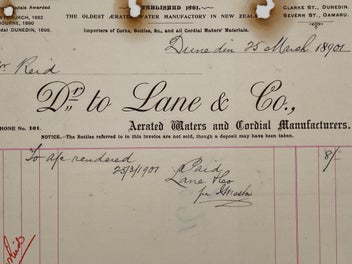 edals Awarded
CHURCH, 1882
bourne, 1880
edal DUNEDIN, 1898.
ESTABLISHED 1861.
THE OLDEST ÆRATED WATER MANUFACTORY IN NEW ZEAL
Importers of Corks, Bottles, &c., and all Cordial Makers' Materials.
CLARKE ST., DUNEDIN.
SEVERN ST., OAMARU.
Dunedin 25 March 1901
r Reid
Dr. to Lane & Co.,
PHONE No. 101.
Aerated Waters and Cordial Manufacturers.
NOTICE.—The Bottles referred to in this invoice are not sold, though a deposit may have been taken.
To a/c rendered
8/-
25/3/1901
Paid
Lane & Co